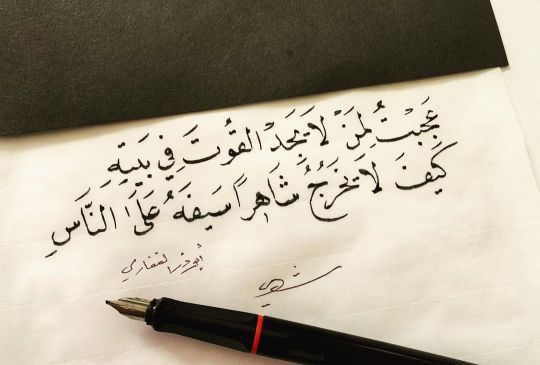 عَجِبْتُ لِمَنْ لَا يَجِدُ القُوتَ فِي بَيتِهِ
كَيفَ لَا يَخرُجُ شَاهِراً سَيفَهُ عَلَى النَّاسِ
أبو ذر الغفاري